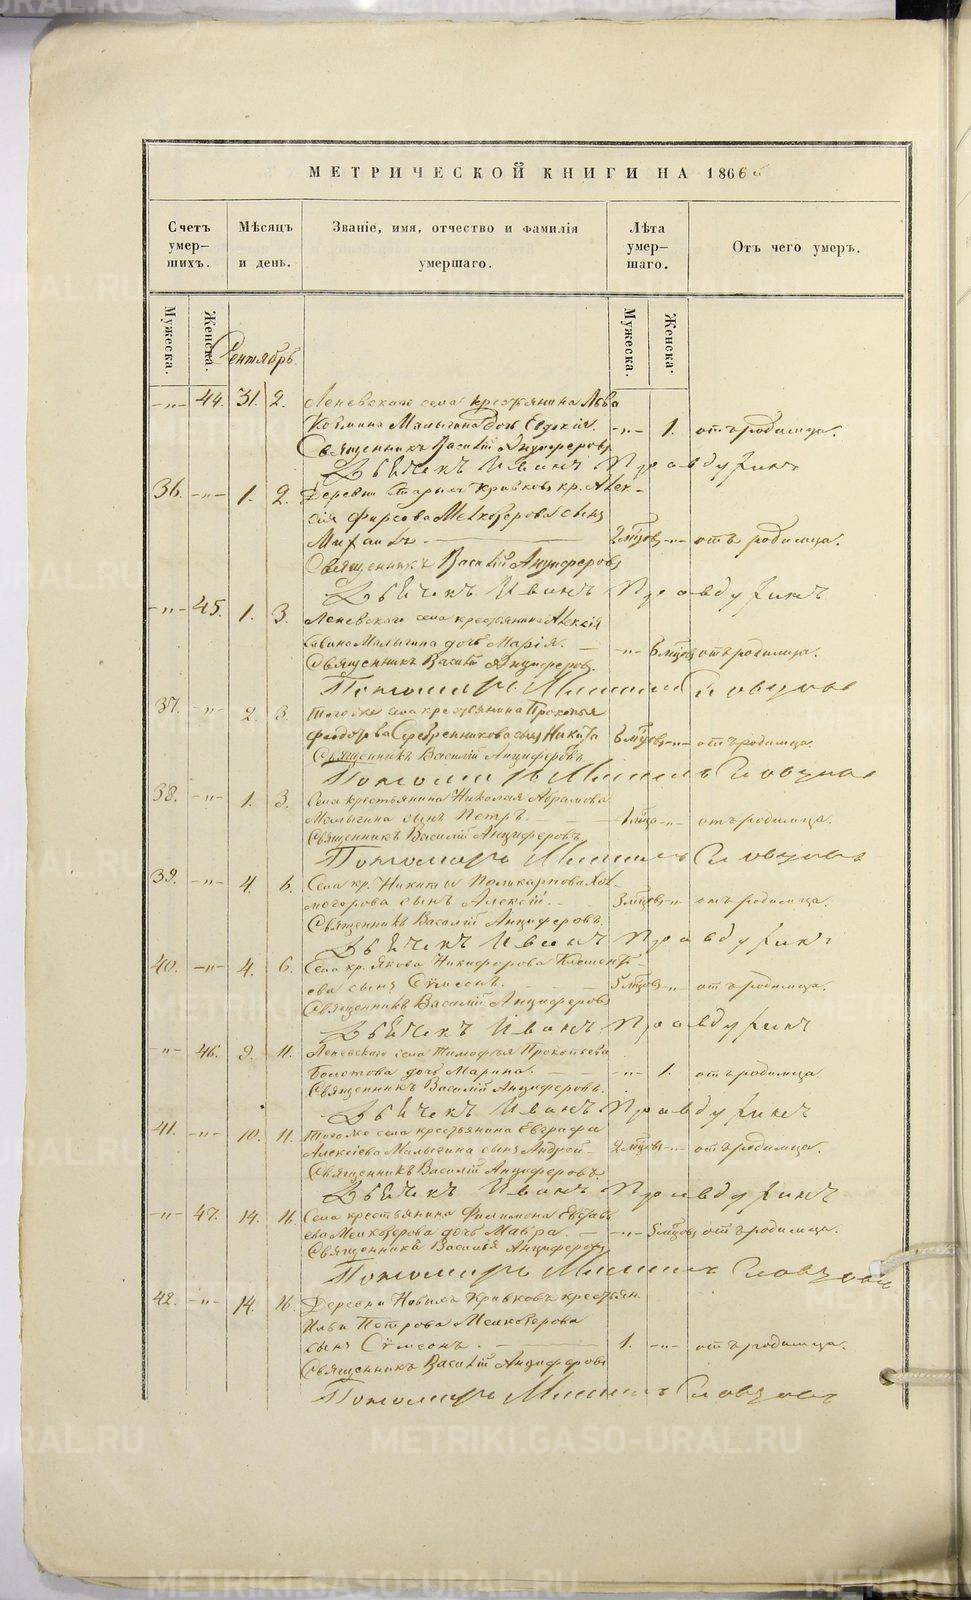 МЕТРИЧЕСКОЙ КНИГИ НА 1866
Счетъ умер- шихъ.
Мѣсяцъ и день.
Званіе, имя, отчество и фамилія умершаго.
Лѣта умер- шаго.
Отъ чего умеръ.
Мужеска.
Женска.
Мужеска.
Женска.
Сентябрь.
-"- 44. 31. 2. Леневскаго села крестьянина Льва
Козмина Малыгина дочь Евдокія. -"- 1. отъ родимца.
Священникъ Василій Анциферовъ
Дьячекъ Иванъ Правдухинъ
36. -"- 1. 2. Деревни Старыхъ Кривковъ кр. Алек-
сія Фирсова Мелкозерова сынъ
Михаилъ 2 мѣсцовъ -"- отъ родимца.
Священникъ Василій Анциферовъ
Дьячекъ Иванъ Правдухинъ
-"- 45. 1. 3. Леневскаго села крестьянина Алексія
Савина Малыгина дочь Марія. -"- 6 мѣсцовъ отъ родимца.
Священникъ Василій Анциферовъ.
Пономарь Словцовъ
37. -"- 2. 3. Того же села крестьянина Прокопья
Феодорова Серебренникова сынъ Никита 6 мѣсцовъ -"- отъ родимца.
Священникъ Василій Анциферовъ.
Пономарь Словцовъ
38. -"- 1. 3. Села крестьянина Николая Абрамова
Малыгина сынъ Петръ. 1 мѣсца -"- отъ родимца.
Священникъ Василій Анциферовъ
Пономарь Словцовъ
39. -"- 4. 6. Села кр. Никиты Поликарпова Хол-
могорова сынъ Алексій. 3 мѣсцовъ -"- отъ родимца.
Священникъ Василій Анциферовъ.
Дьячекъ Иванъ Правдухинъ
40. -"- 4. 6. Села кр. Якова Никифорова Клемент-
ева сынъ Сѵмеонъ. 5 мѣсцовъ -"- отъ родимца.
Священникъ Василій Анциферовъ
Дьячекъ Иванъ Правдухинъ
-"- 46. 9. 11. Леневскаго села Тимофея Прокопьева
Болотова дочь Марина. -"- 1. отъ родимца
Священникъ Василій Анциферовъ.
Дьячекъ Иванъ Правдухинъ
41. -"- 10. 11. Того же села крестьянина Евграфа
Алексіева Малыгина сынъ Андрей 2 мѣсцовъ -"- отъ родимца.
Священникъ Василій Анциферовъ.
Дьячекъ Иванъ Правдухинъ
-"- 47. 14. 16. Села крестьянина Филимона
Мелкозерова дочь Мавра. -"- 5 мѣсцовъ отъ родимца.
Священникъ Василій Анциферовъ
Пономарь Словцовъ
42. -"- 14. 16. Деревни Новыхъ Кривковъ крестьян.
Ильи Петрова Мелкозерова
сынъ Сѵмеонъ. 1. -"- отъ родимца.
Священникъ Василій Анциферовъ
Пономарь Словцовъ
METRIKI.GASO-URAL.RU